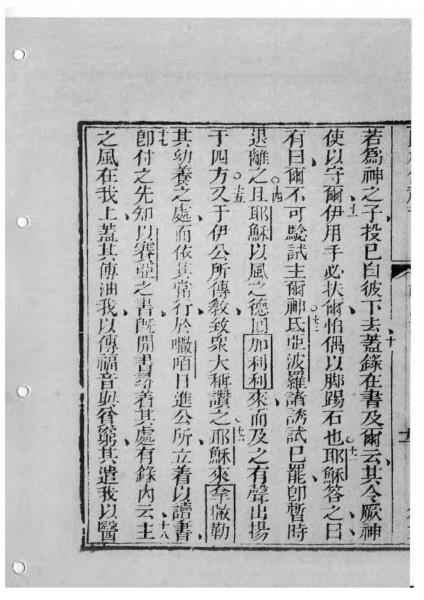 若為神之子投已自彼下去蓋錄在書及爾云其令厥神
十
使以守爾伊用手必扶爾怕偶以脚踢石也耶穌答之曰
十一
十二
有曰爾不可驗試主爾神氐亞波羅諸誘試已罷卽暫時
十三
退離之且耶穌以風之德囘加利利來而及之有聲出揚
十四
于四方又于伊公所傳敎致衆大稱讚之耶穌來拏撒勒
十五
十六
其幼養之處而依其常行於𠻳咟日進公所立着以讀書
卽付之先知以賽亞之書旣開書尋着其處有錄內云主
十七
十八
之風在我上蓋其傅油我以傳福音與貧窮其遣我以醫